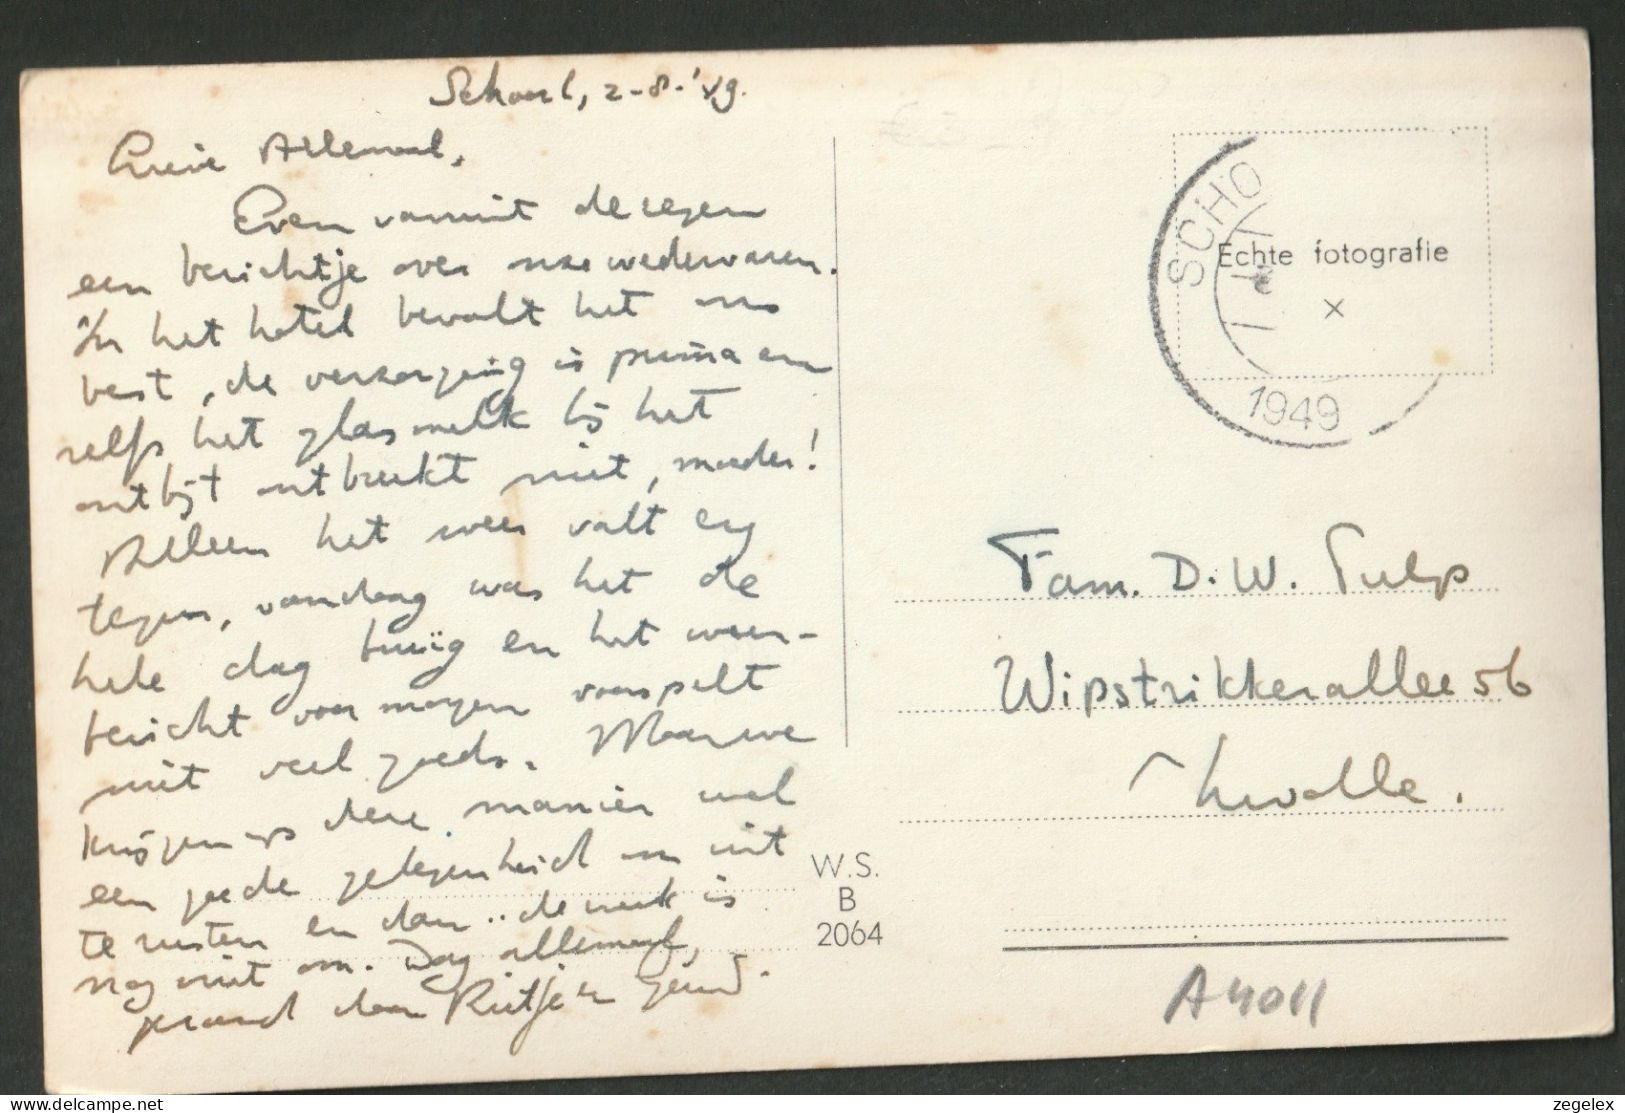 Schoorl, 2-8-'49.
Lieve Allemaal,
Even vanuit de regen
een berichtje over onze wederwaren.
In het hotel bevalt het ons
best, de verzorging is prima en
zelfs het glas melk bij het
ontbijt ontbreekt niet, moeder!
Alleen het weer valt erg
tegen, vandaag was het de
hele dag buiig en het weer-
bericht voor morgen voorspelt
niet veel goeds. Maar we
krijgen op deze manier wel
een goede gelegenheid om uit
te rusten en dan.. de week is
nog niet om. Dag allemaal,
gegroet door Rietje en
SCHO
1949
Echte fotografie
x
Fam. D. W. Tulp
Wipstrikkerallee 56
Zwolle.
W.S.
B
2064
A4011
https://www.delcampe.net
zegelex